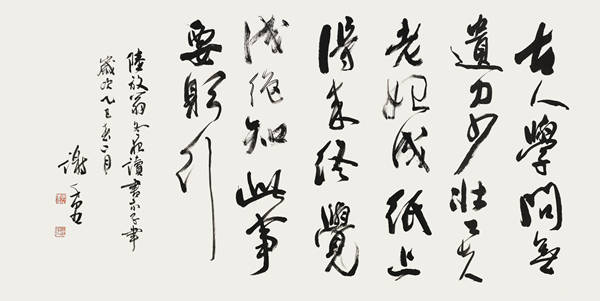 古人學問無
遺力少壯工夫
老始成紙上
得來終覺
淺絕知此事
要躬行
陸放翁冬夜讀書示子聿
歲次
謝